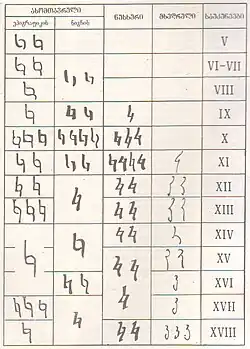 ასომთავრული ნუსხური მხედრული საუკუნეები
ეპიგრაფიკის წიგნის
Ⴉ Ⴉ V
Ⴉ Ⴉ Ⴉ Ⴉ VI–VII
Ⴉ VIII
Ⴉ Ⴉ Ⴉ ⴉ IX
Ⴉ Ⴉ Ⴉ Ⴉ Ⴉ Ⴉ Ⴉ ⴉ ⴉ ⴉ X
Ⴉ Ⴉ Ⴉ Ⴉ ⴉ ⴉ ⴉ ⴉ კ XI
Ⴉ Ⴉ Ⴉ ⴉ ⴉ კ კ XII
Ⴉ Ⴉ Ⴉ ⴉ ⴉ კ კ XIII
Ⴉ Ⴉ ⴉ ⴉ კ XIV
ⴉ ⴉ კ კ XV
Ⴉ Ⴉ ⴉ კ XVI
Ⴉ Ⴉ Ⴉ Ⴉ კ XVII
Ⴉ ⴉ ⴉ კ კ კ XVIII